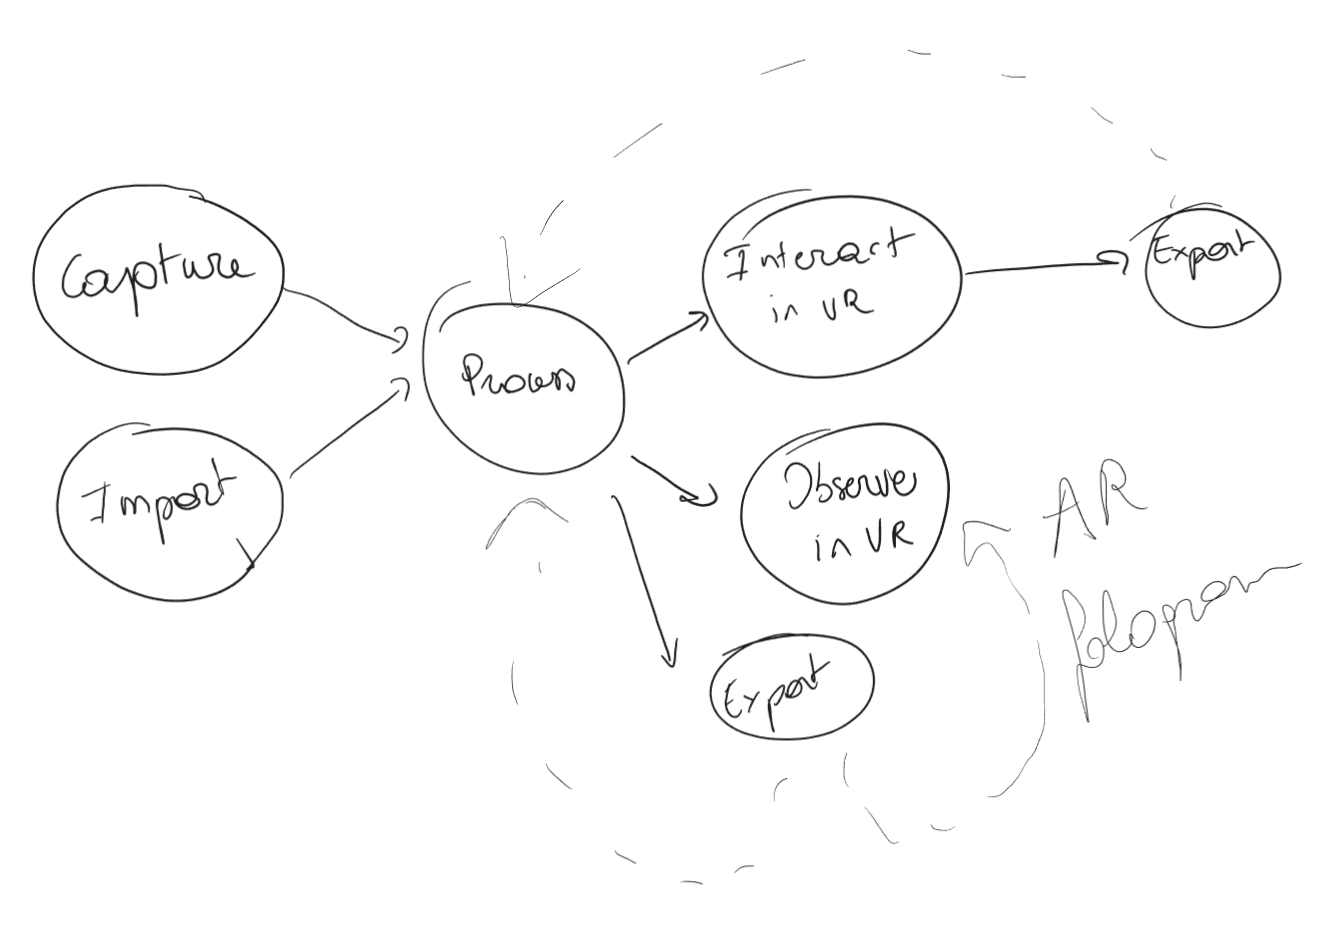 Capture
Import
Process
Interact
in VR
Export
Observe
in VR
Export
AR